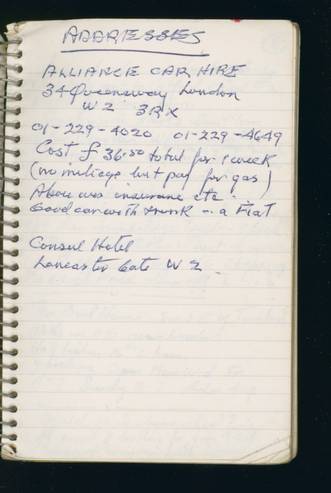 ADDRESSES
ALLIANCE CAR HIRE
34 Queensway London
W 2 3RX
01-229-4020 01-229-4649
Cost £ 36.50 total for 1 week
(no mileage but pay for gas)
Above was insurance etc.
Good car with trunk - a Fiat
Consul Hotel
Lancaster Gate W 2.